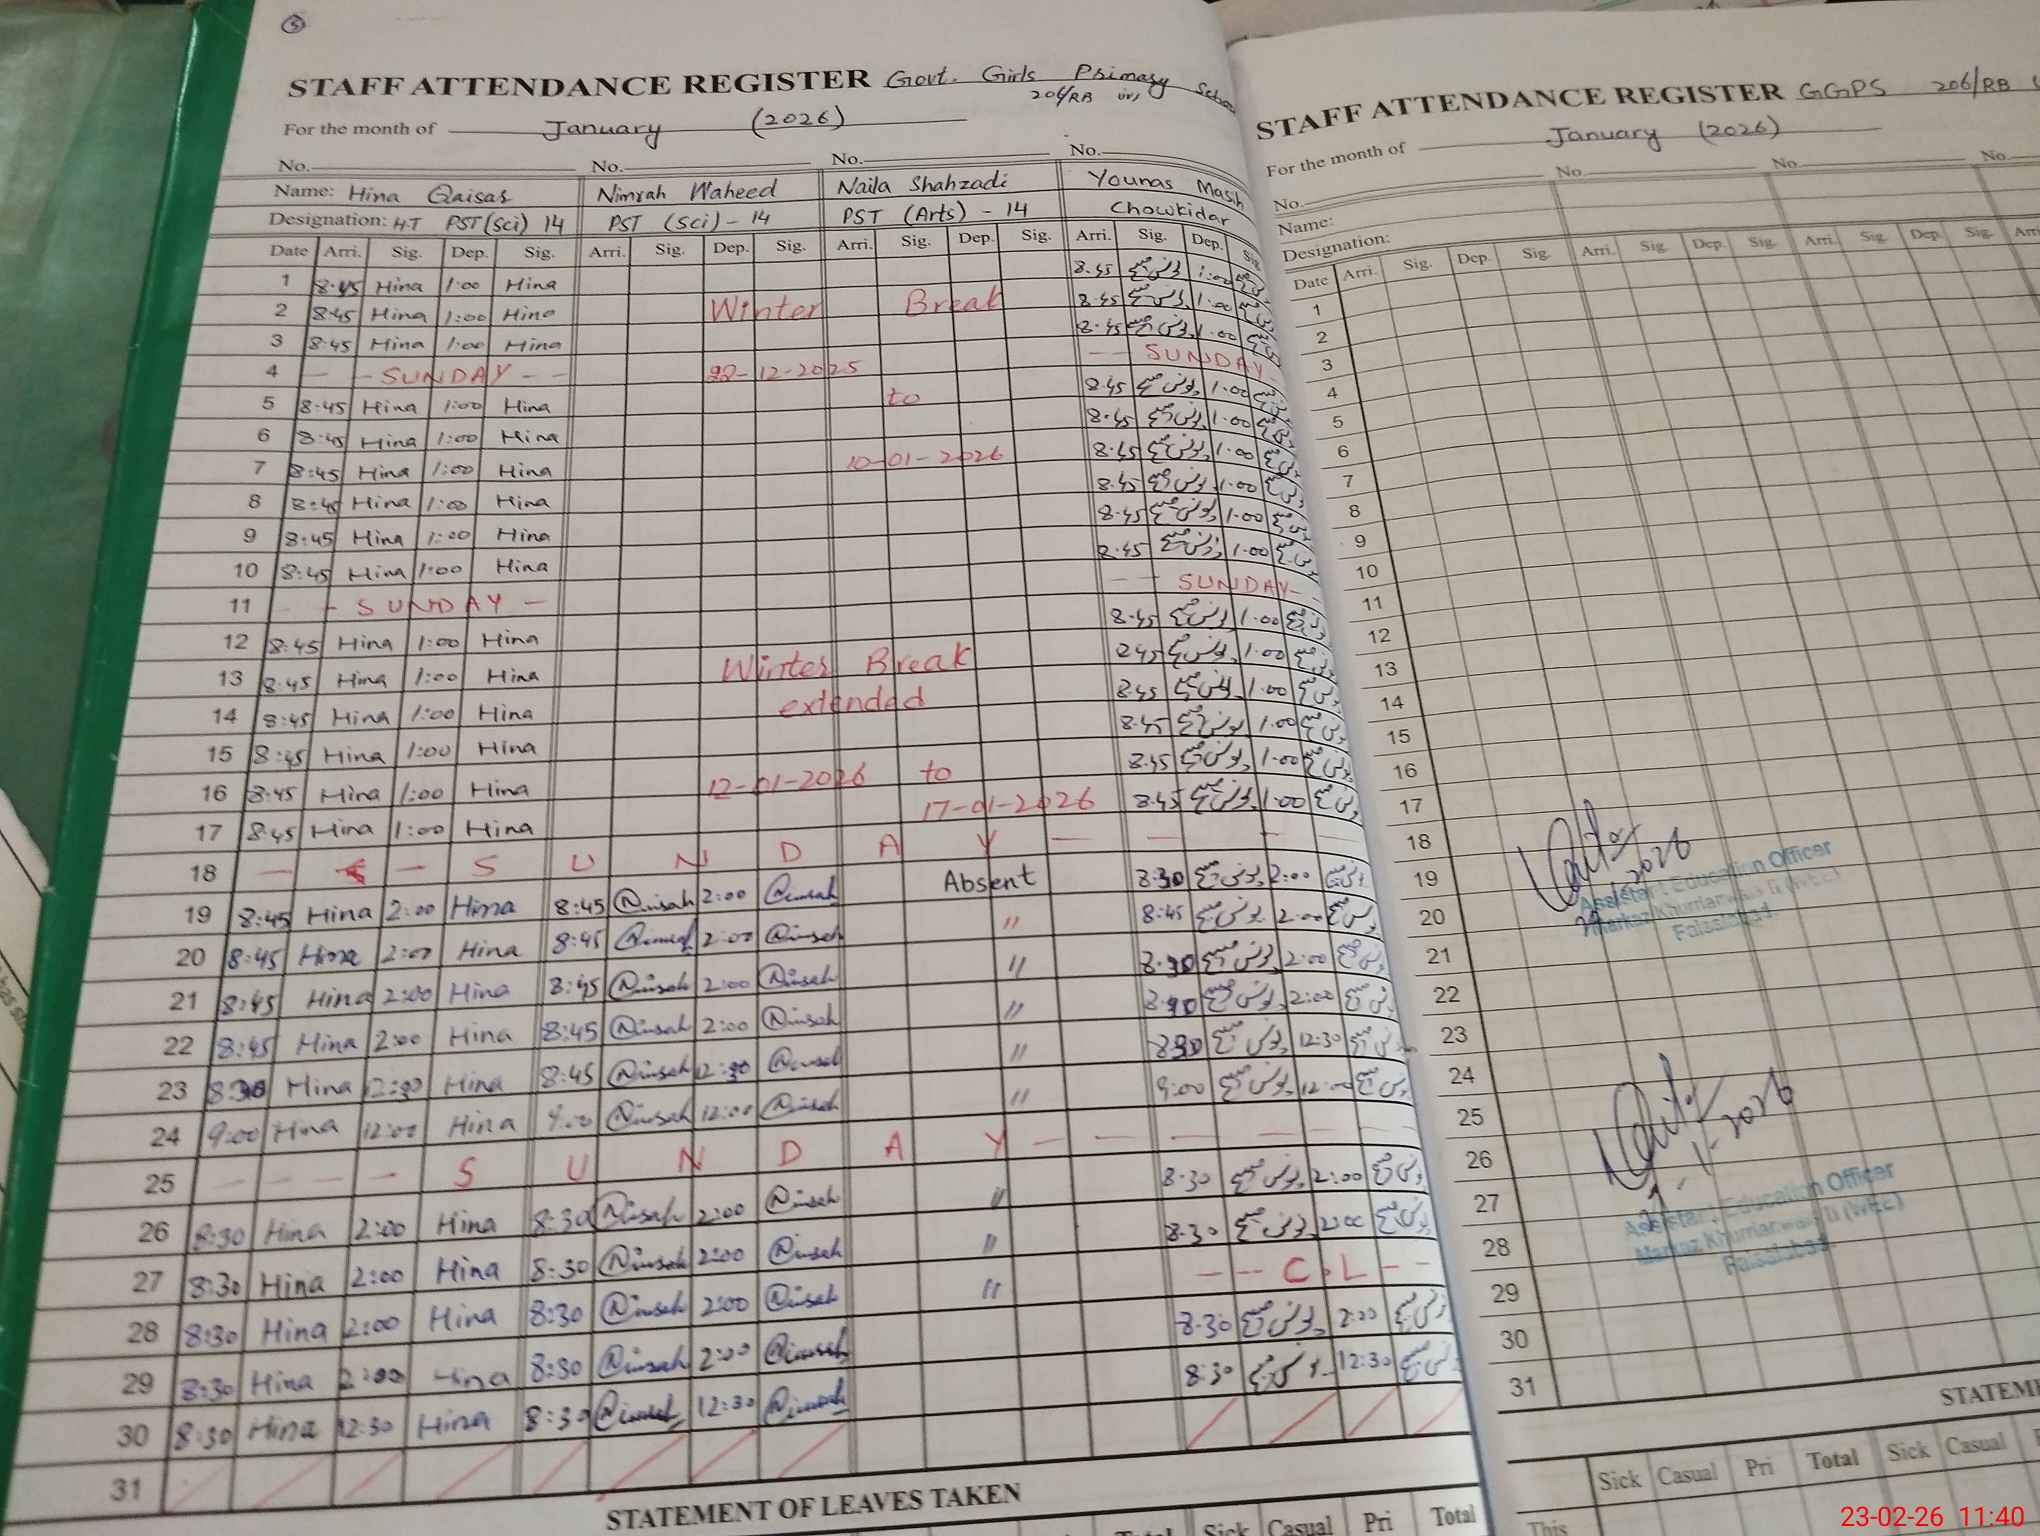 5
STAFF ATTENDANCE REGISTER Govt. Girls Primary School
206/RB
For the month of January (2026)
No. No. No. No.
Name: Hina Qaisar Nimrah Waheed Naila Shahzadi Younas Masih
Designation: H.T PST (Sci) 14 PST (Sci) - 14 PST (Arts) - 14 Chowkidar
Date Arri. Sig. Dep. Sig. Arri. Sig. Dep. Sig. Arri. Sig. Dep. Sig. Arri. Sig. Dep. Sig.
1 8:45 Hina 1:00 Hina 8.45 یونس مسیح 1:00
2 8:45 Hina 1:00 Hina Winter Break 8.45 یونس مسیح 1:00
3 8:45 Hina 1:00 Hina 8.45 یونس مسیح 1.00
4 - - SUNDAY - - 22-12-2025 - - SUNDAY -
5 8:45 Hina 1:00 Hina to 8.45 یونس مسیح 1.00
6 8:45 Hina 1:00 Hina 8.45 یونس مسیح 1.00
7 8:45 Hina 1:00 Hina 10-01-2026 8.45 یونس مسیح 1.00
8 8:45 Hina 1:00 Hina 8.45 یونس مسیح 1.00
9 8:45 Hina 1:00 Hina 8.45 یونس مسیح 1.00
10 8:45 Hina 1:00 Hina 8.45 یونس مسیح 1.00
11 - - SUNDAY - - - SUNDAY -
12 8:45 Hina 1:00 Hina 8.45 یونس مسیح 1.00
13 8:45 Hina 1:00 Hina Winter Break یونس مسیح 1.00
14 8:45 Hina 1:00 Hina extended 8.45 یونس مسیح 1.00
15 8:45 Hina 1:00 Hina 8.45 یونس مسیح 1.00
16 8:45 Hina 1:00 Hina 12-01-2026 to 8.45 یونس مسیح 1.00
17 8:45 Hina 1:00 Hina 17-01-2026 8.45 یونس مسیح 1.00
18 - - - S U N D A Y - - - -
19 8:45 Hina 2:00 Hina 8:45 Nimrah 2:00 Nimrah Absent 8.30 یونس مسیح 2:00 یونس مسیح
20 8:45 Hina 2:00 Hina 8:45 Nimrah 2:00 Nimrah " 8:45 یونس مسیح 2:00
21 8:45 Hina 2:00 Hina 8:45 Nimrah 2:00 Nimrah " 8.30 یونس مسیح 2:00
22 8:45 Hina 2:00 Hina 8:45 Nimrah 2:00 Nimrah " یونس مسیح 2:00
23 8:30 Hina 12:30 Hina 8:45 Nimrah 12:30 Nimrah " 8.30 یونس مسیح 12:30
24 9:00 Hina 12:00 Hina 9:00 Nimrah 12:00 Nimrah " 9:00 یونس مسیح 12:00
25 - - - S U N D A Y - - - - - -
26 8:30 Hina 2:00 Hina 8:30 Nimrah 2:00 Nimrah " 8.30 یونس مسیح 2:00
27 8:30 Hina 2:00 Hina 8:30 Nimrah 2:00 Nimrah " 8.30 یونس مسیح 2:00
28 8:30 Hina 2:00 Hina 8:30 Nimrah 2:00 Nimrah " - - - C.L - -
29 8:30 Hina 2:00 Hina 8:30 Nimrah 2:00 Nimrah 8.30 یونس مسیح 2:00
30 8:30 Hina 12:30 Hina 8:30 Nimrah 12:30 Nimrah 8:30 یونس مسیح 12:30
31
STATEMENT OF LEAVES TAKEN
Total Sick Casual Pri Total
STAFF ATTENDANCE REGISTER GGPS 206/RB
For the month of January (2026)
No. No. No. No.
Name:
Designation:
Date Arri. Sig. Dep. Sig. Arri. Sig. Dep. Sig. Arri. Sig. Dep. Sig.
1
2
3
4
5
6
7
8
9
10
11
12
13
14
15
16
17
18
19
20
21
22
23
24
25
26
27
28
29
30
31
Assistant Education Officer
Markaz Khurrianwala (WEE)
Faisalabad
Assistant Education Officer
Markaz Khurrianwala (WEE)
Faisalabad
Sick Casual Pri Total Sick Casual
This
23-02-26 11:40